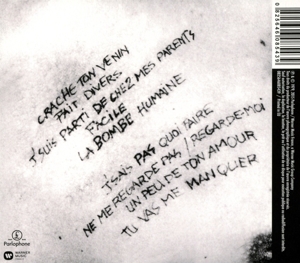 CRACHE TON VENIN
FAIT DIVERS
J'SUIS PARTI DE CHEZ MES PARENTS
FACILE
LA BOMBE HUMAINE
J'SAIS PAS QUOI FAIRE
NE ME REGARDE PAS / REGARDE-MOI
UN PEU DE TON AMOUR
TU VAS ME MANQUER
Parlophone
WARNER MUSIC